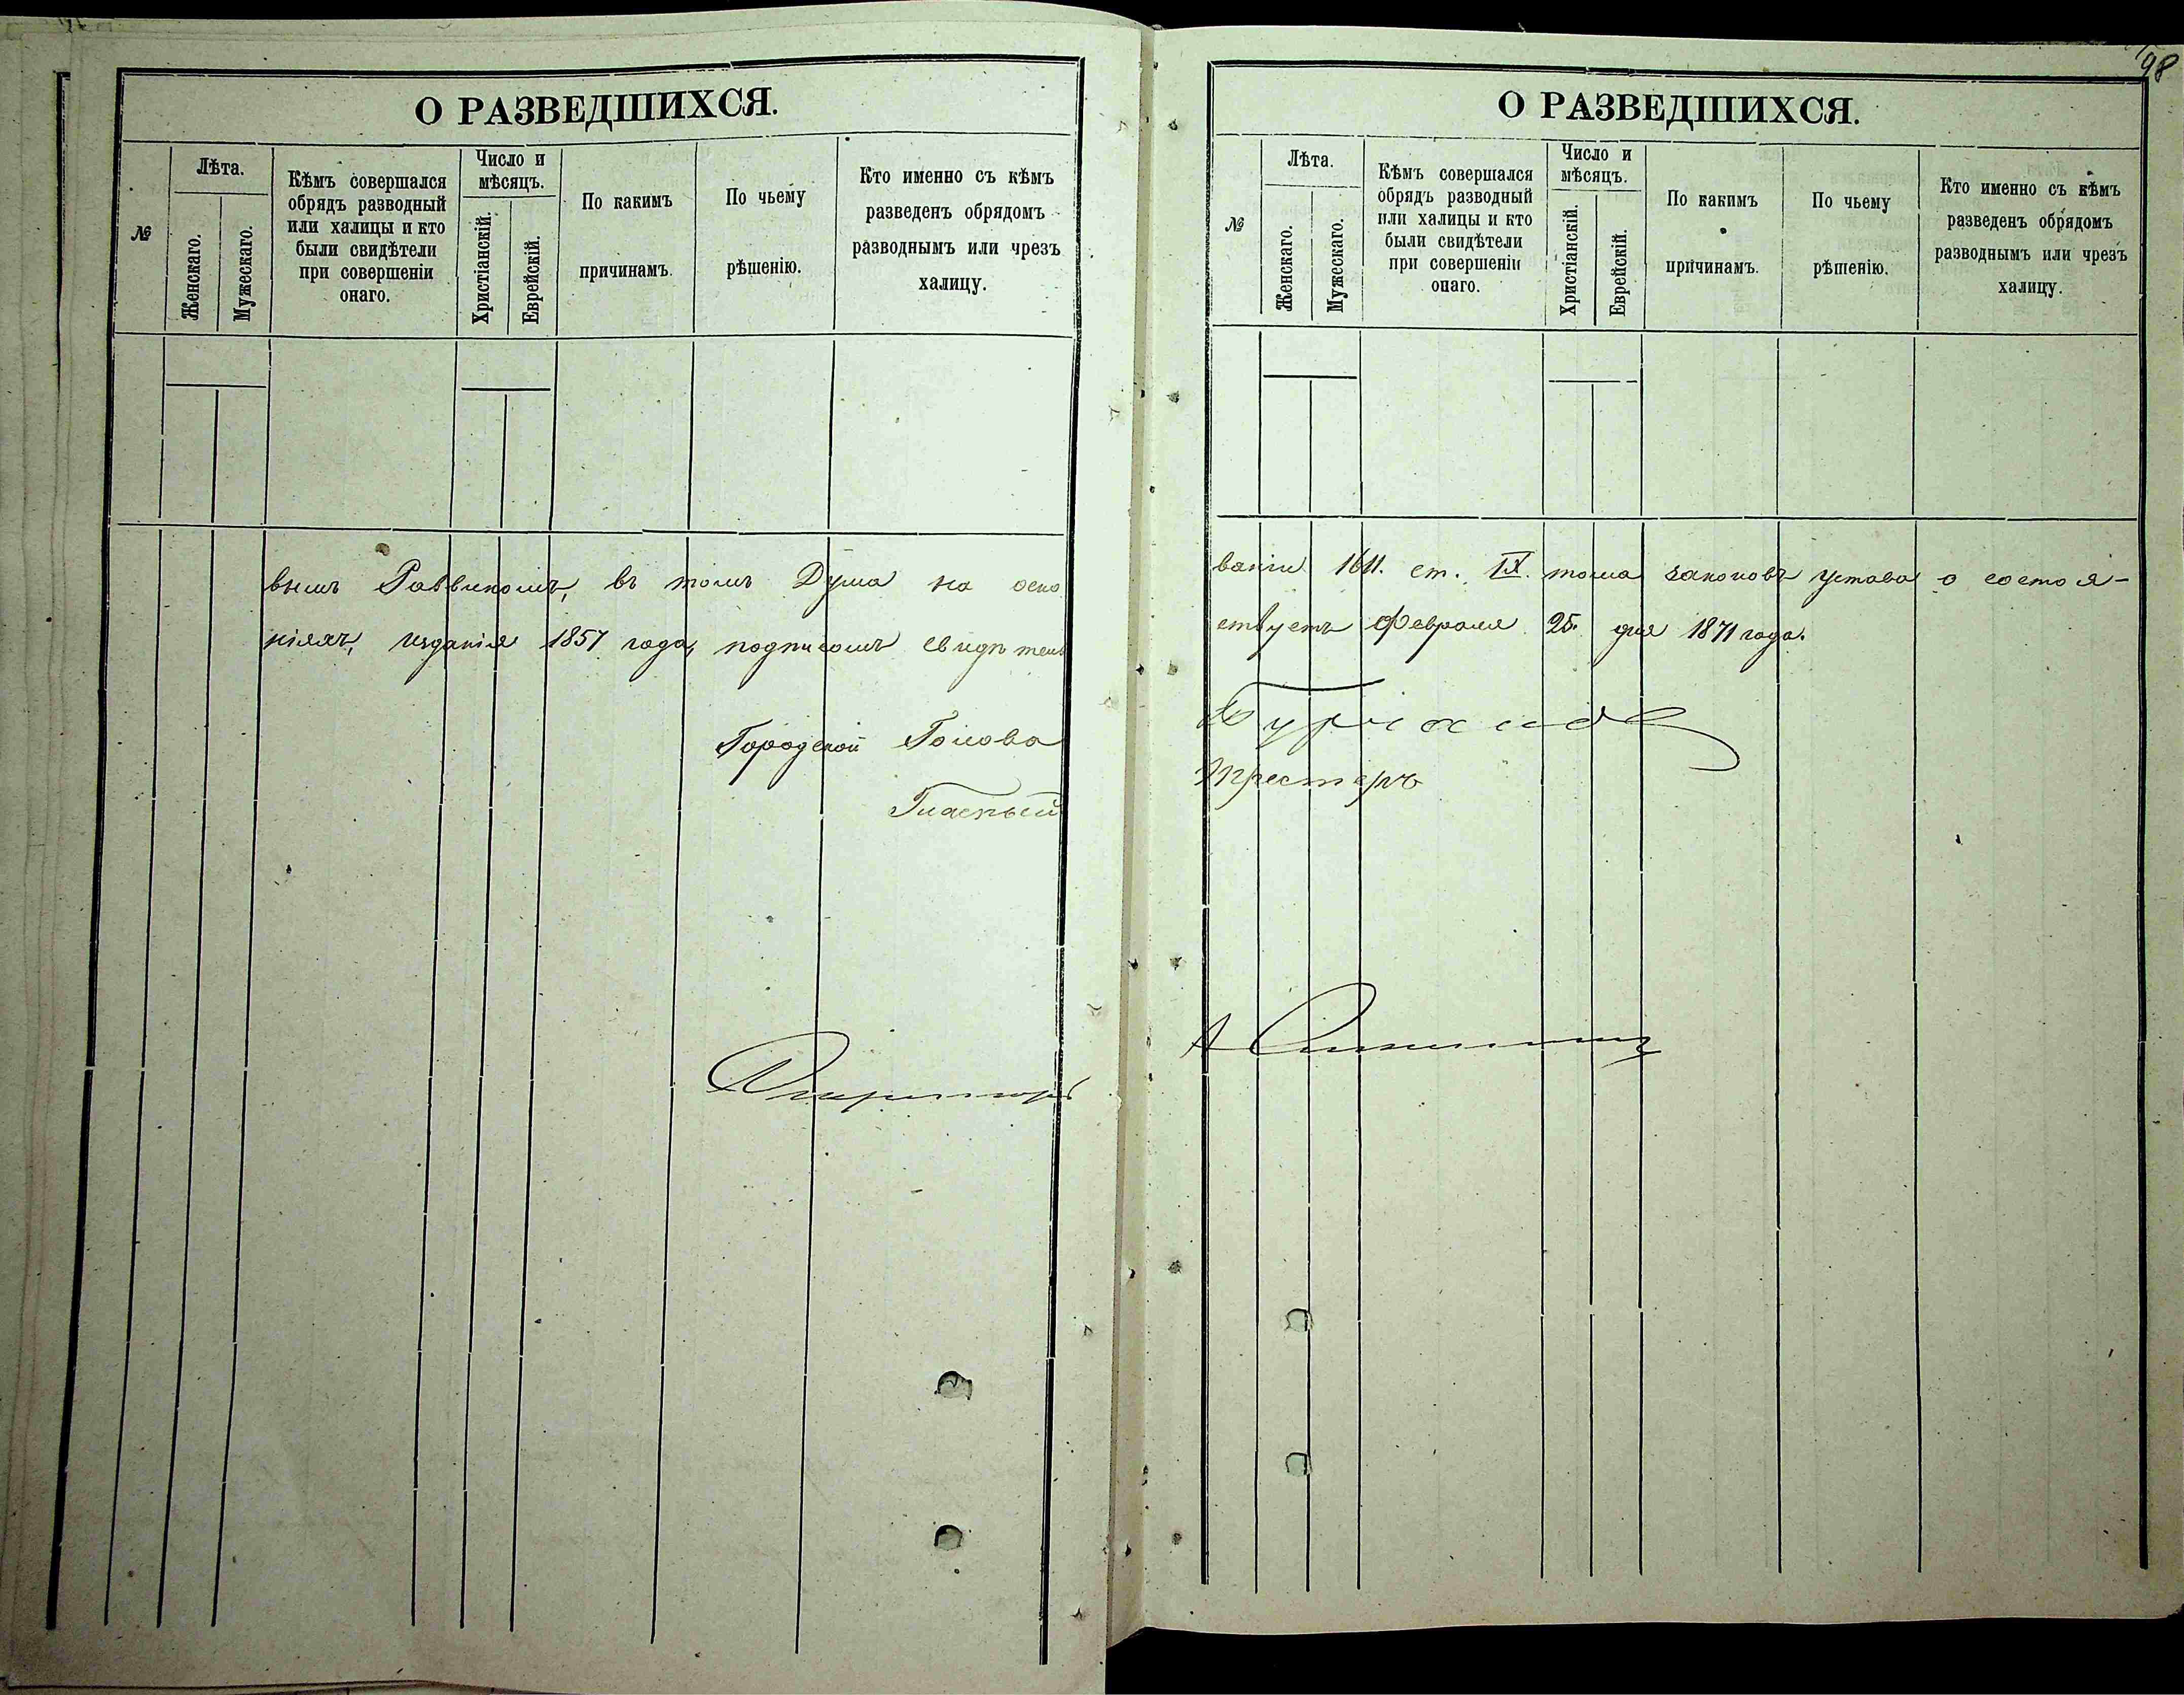 98
О РАЗВЕДШИХСЯ.
№
Лѣта.
Женскаго.
Мужескаго.
Кѣмъ совершался
обрядъ разводный
или халицы и кто
были свидѣтели
при совершеніи
онаго.
Число и
мѣсяцъ.
Христіанскій.
Еврейскій.
По какимъ
причинамъ.
По чьему
рѣшенію.
Кто именно съ кѣмъ
разведенъ обрядомъ
разводнымъ или чрезъ
халицу.
О РАЗВЕДШИХСЯ.
№
Лѣта.
Женскаго.
Мужескаго.
Кѣмъ совершался
обрядъ разводный
или халицы и кто
были свидѣтели
при совершеніи
онаго.
Число и
мѣсяцъ.
Христіанскій.
Еврейскій.
По какимъ
причинамъ.
По чьему
рѣшенію.
Кто именно съ кѣмъ
разведенъ обрядомъ
разводнымъ или чрезъ
халицу.
вымъ Раввиномъ, въ томъ Дума на осно
ваніи 1611. ст. IX. тома законовъ устава о состоя-
ніяхъ, изданія 1857 года, подписомъ свидѣтель
ствуетъ Февраля 25. дня 1871 года.
Городской Голова
Гласный